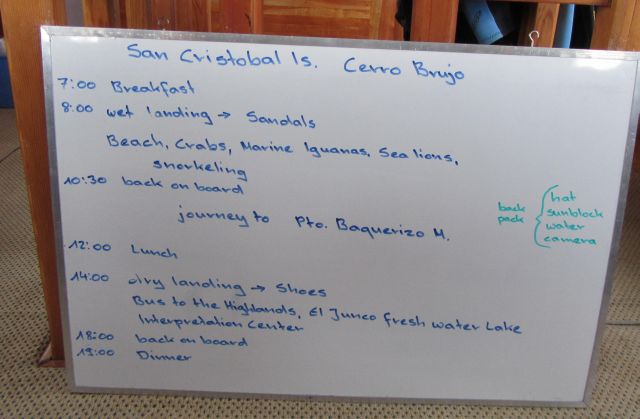 San Cristobal Is. Cerro Brujo
7:00 Breakfast
8:00 wet landing → Sandals
Beach, Crabs, Marine Iguanas, Sea lions,
snorkeling
10:30 back on board
journey to Pto. Baquerizo M.
back pack { hat
sunblock
water
camera
12:00 Lunch
14:00 dry landing → Shoes
Bus to the Highlands, El Junco fresh water Lake
Interpretation Center
18:00 back on board
19:00 Dinner